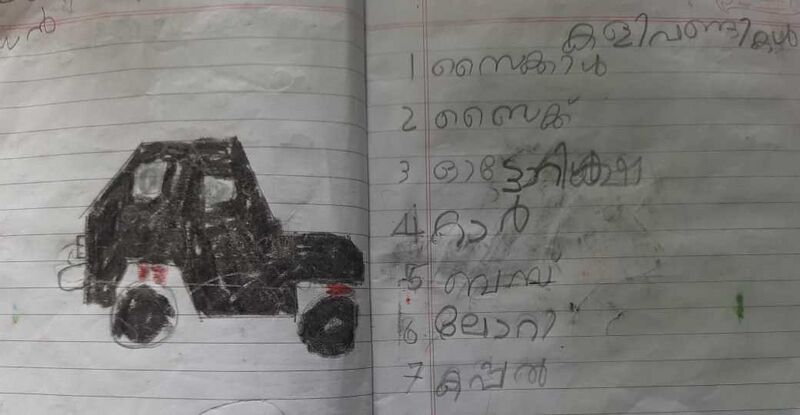 കളിവണ്ടികൾ
1 സൈക്കിൾ
2 ബൈക്ക്
3 ഓട്ടോറിക്ഷ
4 കാർ
5 ബസ്സ്
6 ലോറി
7 കപ്പൽ